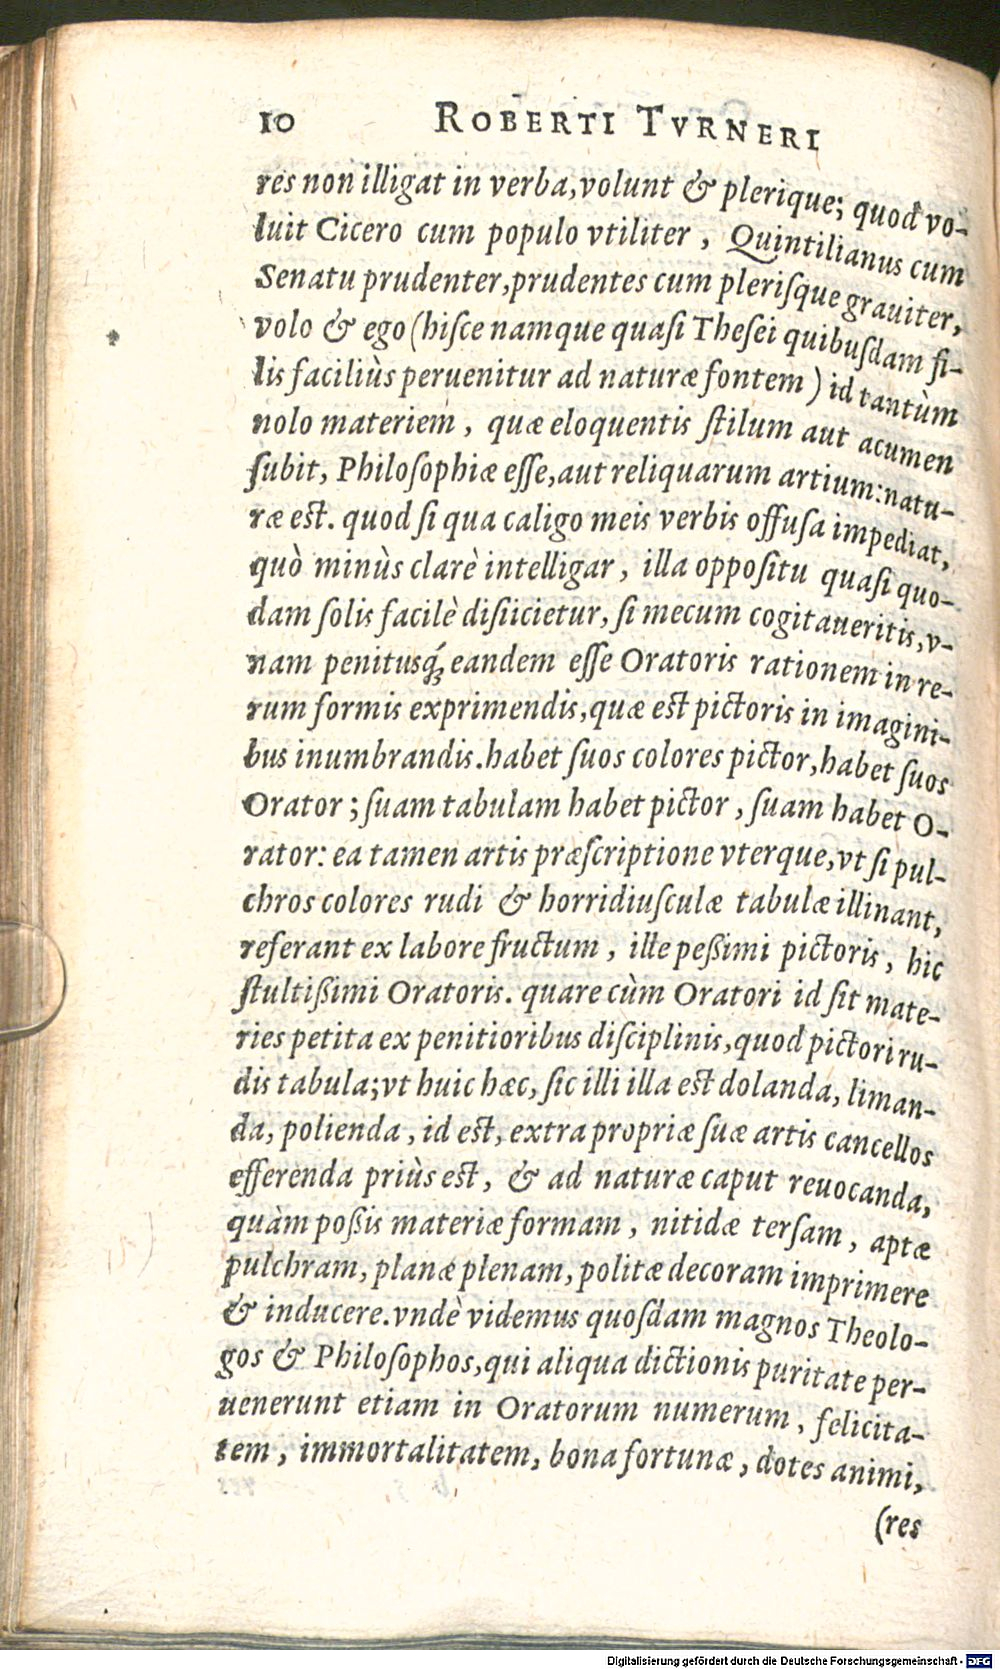 10 ROBERTI TVRNERI
res non illigat in verba, volunt & plerique; quod vo-
luit Cicero cum populo vtiliter, Quintilianus cum
Senatu prudenter, prudentes cum plerisque grauiter,
volo & ego (hisce namque quasi Thesei quibusdam fi-
lis faciliùs peruenitur ad naturæ fontem) id tantùm
nolo materiem, quæ eloquentis stilum aut acumen
subit, Philosophiæ esse, aut reliquarum artium: natu-
ræ est. quod si qua caligo meis verbis offusa impediat,
quò minùs clarè intelligar, illa oppositu quasi quo-
dam solis facilè disiicietur, si mecum cogitaueritis, v-
nam penitusq́; eandem esse Oratoris rationem in re-
rum formis exprimendis, quæ est pictoris in imagini-
bus inumbrandis. habet suos colores pictor, habet suos
Orator; suam tabulam habet pictor, suam habet O-
rator: ea tamen artis præscriptione vterque, vt si pul-
chros colores rudi & horridiusculæ tabulæ illinant,
referant ex labore fructum, ille peßimi pictoris, hic
stultißimi Oratoris. quare cùm Oratori id sit mate-
ries petita ex penitioribus disciplinis, quod pictori ru-
dis tabula; vt huic hæc, sic illi illa est dolanda, liman-
da, polienda, id est, extra propriæ suæ artis cancellos
efferenda priùs est, & ad naturæ caput reuocanda,
quàm poßis materiæ formam, nitidæ tersam, aptæ
pulchram, planæ plenam, politæ decoram imprimere
& inducere. vndè videmus quosdam magnos Theolo-
gos & Philosophos, qui aliqua dictionis puritate per-
uenerunt etiam in Oratorum numerum, felicita-
tem, immortalitatem, bona fortunæ, dotes animi,
(res
Digitalisierung gefördert durch die Deutsche Forschungsgemeinschaft - DFG